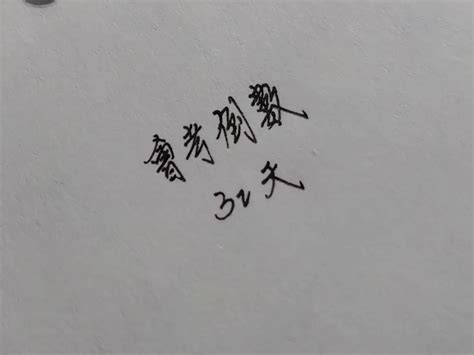 會考倒數
32天